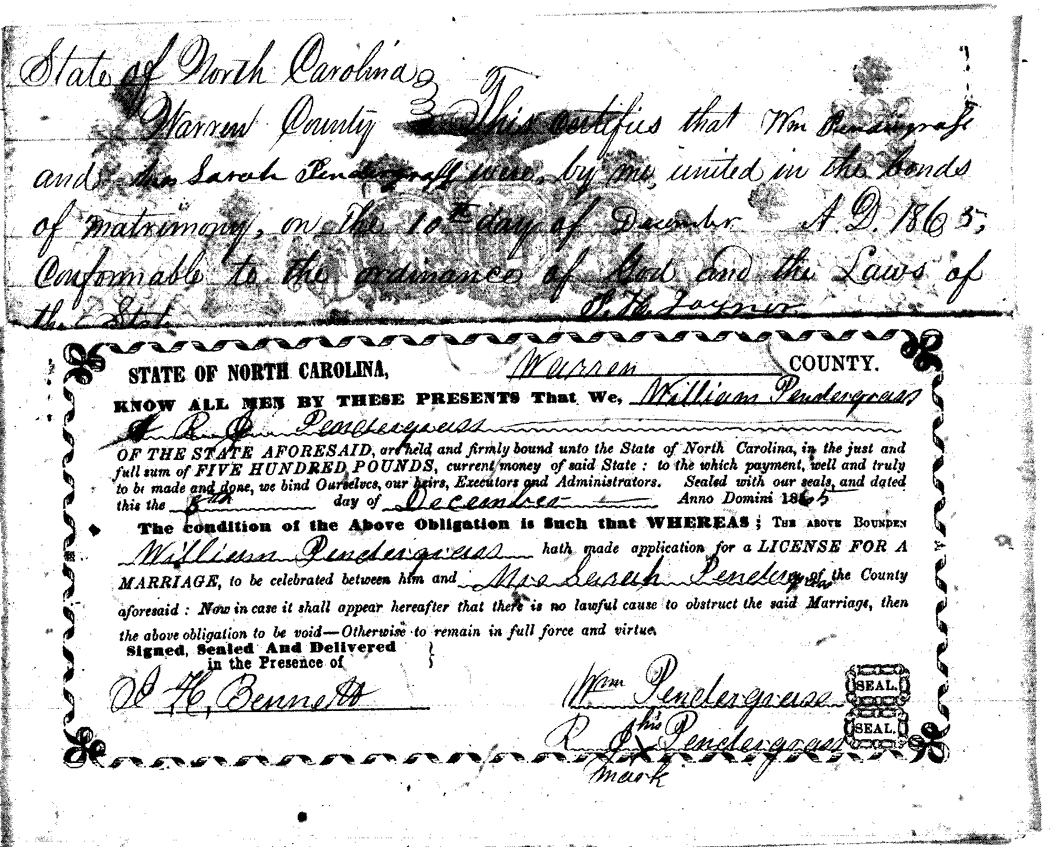 State of North Carolina
Warren County This certifies that Wm Pendergrass
and Mrs Sarah Pendergrass were, by me, united in the bonds
of matrimony, on the 10th day of December A. D. 1865,
Conformable to the ordinance of God and the Laws of
the State
STATE OF NORTH CAROLINA, Warren COUNTY.
KNOW ALL MEN BY THESE PRESENTS That We, William Pendergrass
& R J Pendergrass
OF THE STATE AFORESAID, are held and firmly bound unto the State of North Carolina, in the just and
full sum of FIVE HUNDRED POUNDS, current money of said State : to the which payment, well and truly
to be made and done, we bind Ourselves, our heirs, Executors and Administrators. Sealed with our seals, and dated
this the 8th day of December Anno Domini 1865
The condition of the Above Obligation is Such that WHEREAS ; THE ABOVE BOUNDEN
William Pendergrass hath made application for a LICENSE FOR A
MARRIAGE, to be celebrated between him and Mrs Sarah Pendergrass of the County
aforesaid : Now in case it shall appear hereafter that there is no lawful cause to obstruct the said Marriage, then
the above obligation to be void—Otherwise to remain in full force and virtue.
Signed, Sealed And Delivered }
in the Presence of
H. Bennett
Wm Pendergrass SEAL.
R J his X Pendergrass SEAL.
mark